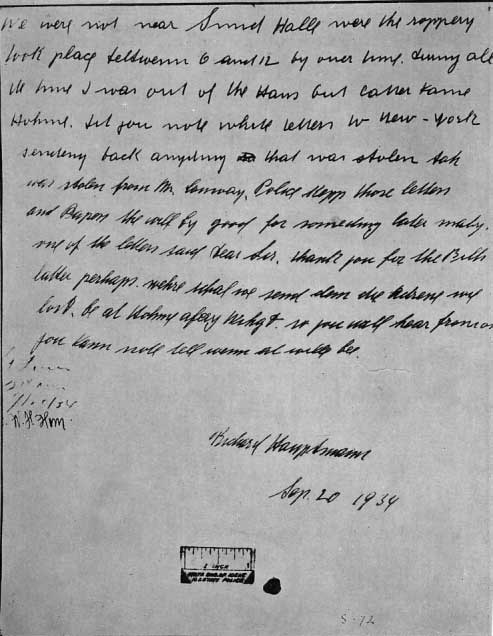 We were not near Smid Halle were the roppery
took place between 6 and 12 by ouer time. During all
the time I was out of the Haus but later Kame
Hohme. Did you note write letters to New-York
sending back anyding that was stolen
was stolen from Mr. Conway. Police Keepp those letters
and Papers the will by good for someding later maby.
one of the letters said Dear Sir, thank you for the Bills
latter perhaps. wehre schal we send dem die Adress we
lost. be at Hohme afery Night. so you will hear from us
you Kann note tell wenn it will be.
/34
Richard Hauptmann
Sep. 20 1934
1 INCH
POLICE
S-72